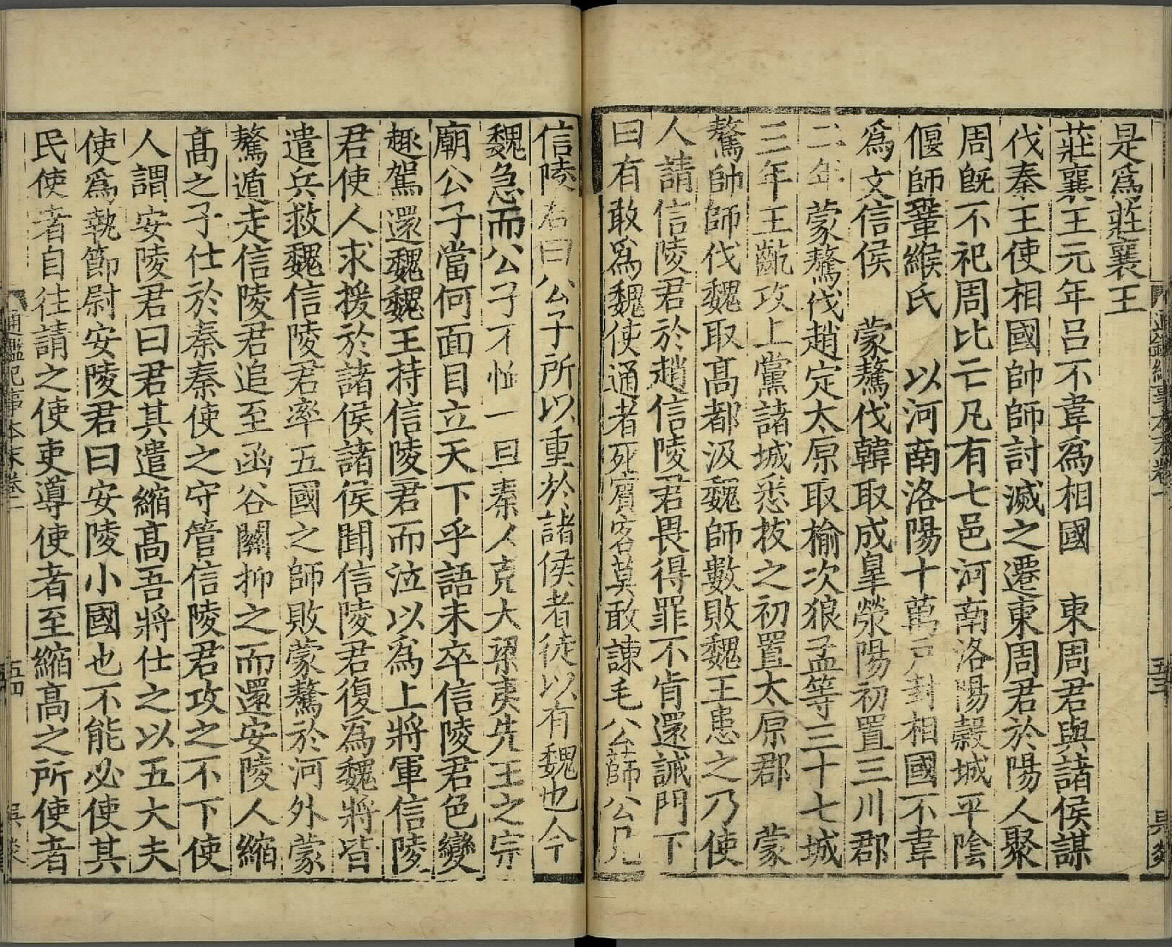 是爲莊襄王
莊襄王元年吕不韋爲相國　東周君與諸侯謀
伐秦王使相國帥師討滅之遷東周君於陽人聚
周旣不祀周比亡凡有七邑河南洛陽穀城平隂
偃師鞏緱氏　以河南洛陽十萬戸封相國不韋
爲文信侯　蒙驁伐韓取成皐滎陽初置三川郡
二年蒙驁伐趙定太原取榆次狼孟等三十七城
三年王齕攻上黨諸城悉拔之初置太原郡　蒙
驁帥師伐魏取高都汲魏師數敗魏王患之乃使
人請信陵君於趙信陵君畏得罪不肯還誡門下
曰有敢爲魏使通者死賓客莫敢諫毛公薛公見
信陵君曰公子所以重於諸侯者徒以有魏也今
魏急而公子不恤一旦秦人克大梁夷先王之宗
廟公子當何面目立天下乎語未卒信陵君色變
趣駕還魏魏王持信陵君而泣以爲上將軍信陵
君使人求援於諸侯諸侯聞信陵君復爲魏將皆
遣兵救魏信陵君率五國之師敗蒙驁於河外蒙
驁遁走信陵君追至函谷關抑之而還安陵人縮
高之子仕於秦秦使之守管信陵君攻之不下使
人謂安陵君曰君其遣縮高吾將仕之以五大夫
使爲執節尉安陵君曰安陵小國也不能必使其
民使者自往請之使吏導使者至縮高之所使者
通鑑紀事本末卷一
五四